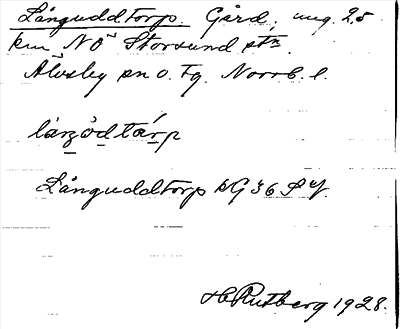 Långuddtorp. Gård, ung. 25
km NÖ Storsund stn.
Älvsby sn o. tg. Norrb. l.
Långuddtorp bG36
H Rutberg 1928.